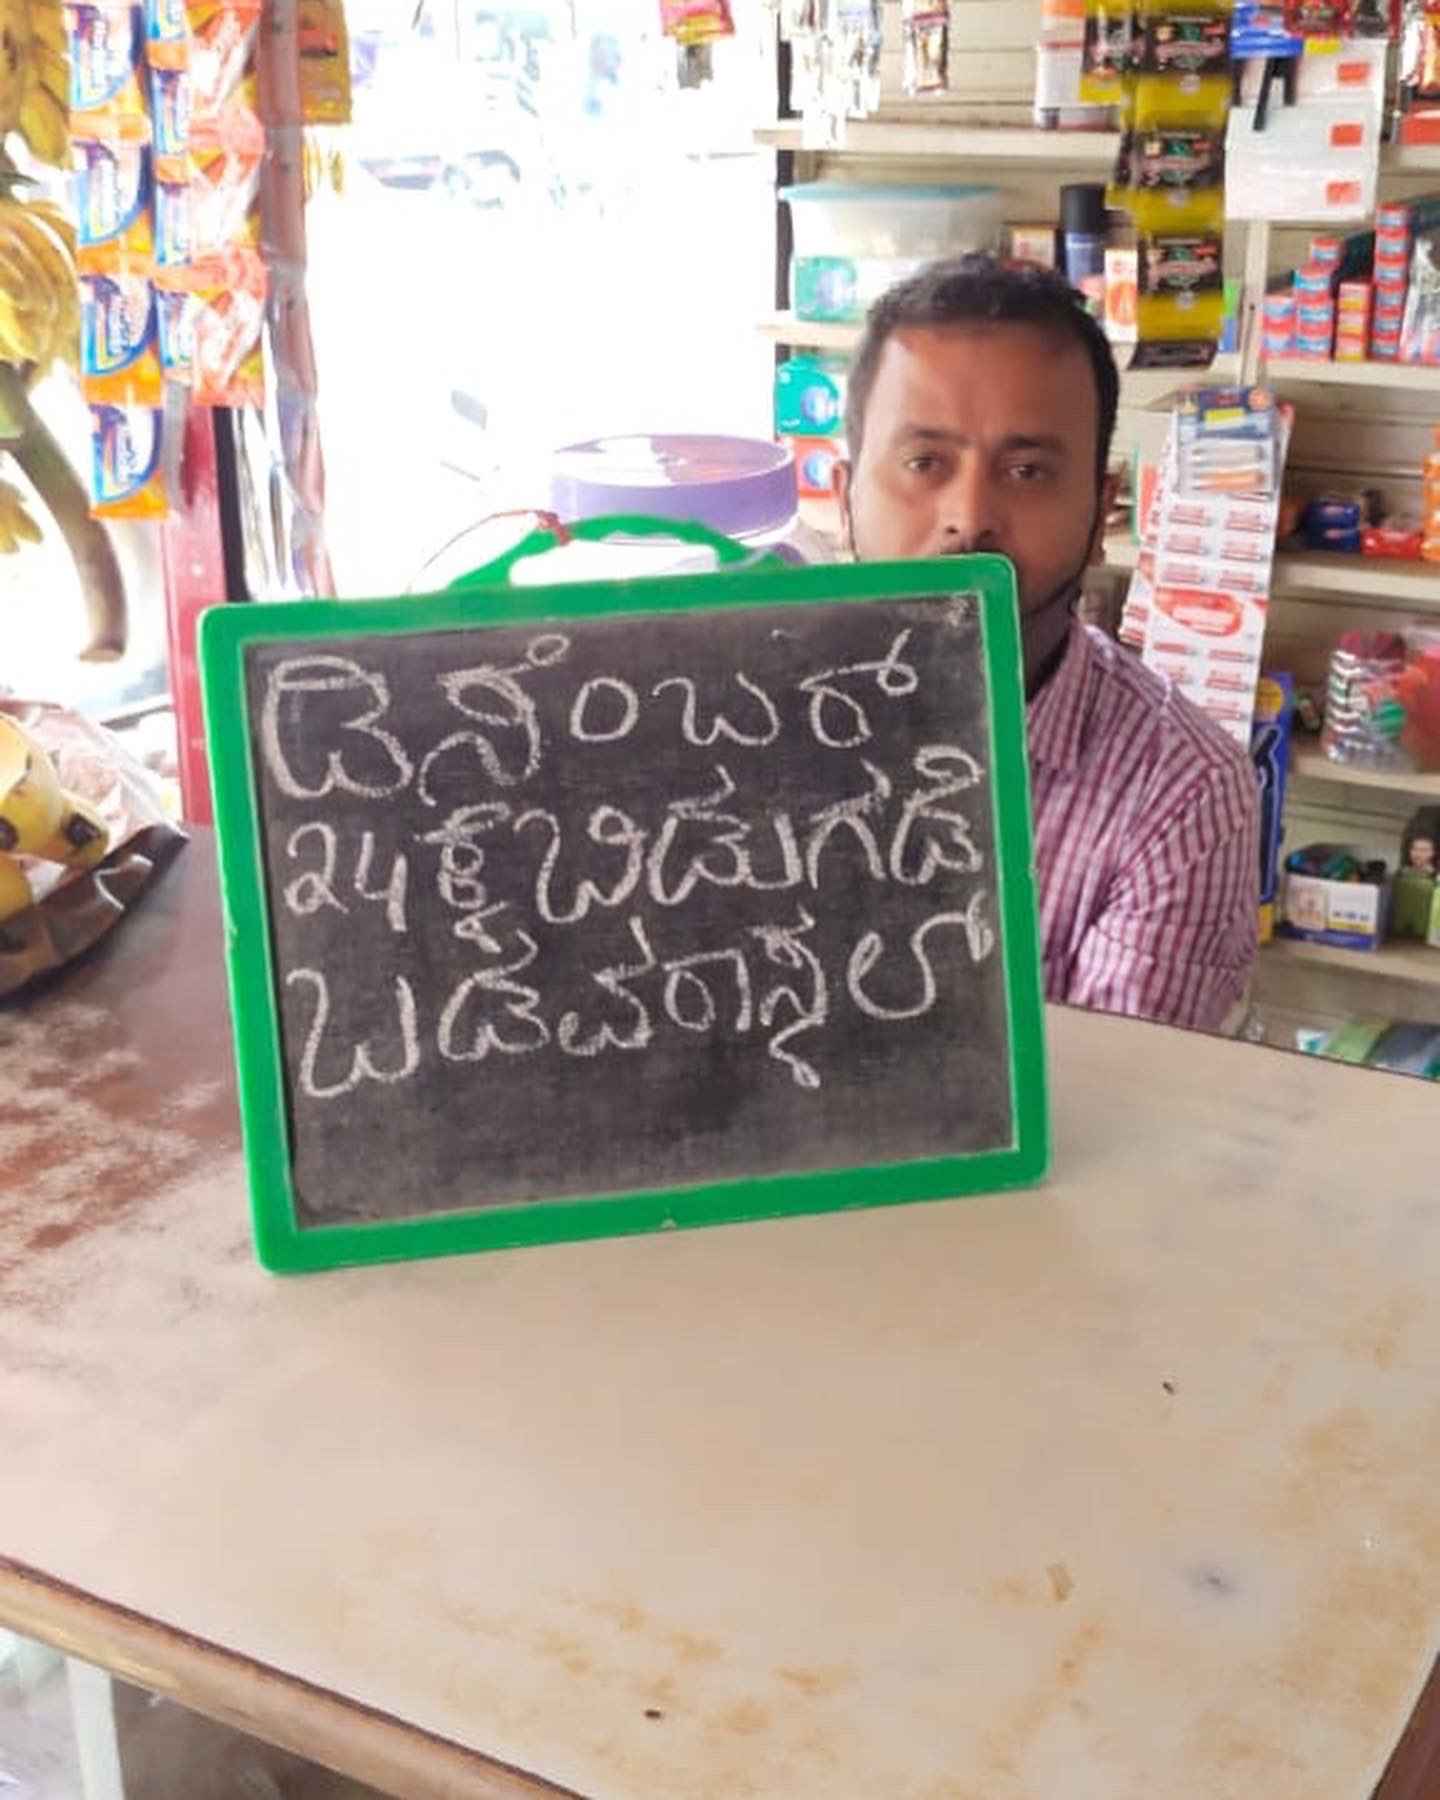 ಡಿಸೆಂಬರ್
24ಕ್ಕೆ ಬಿಡುಗಡೆ
ಬಡವರಾಸ್ಕಲ್